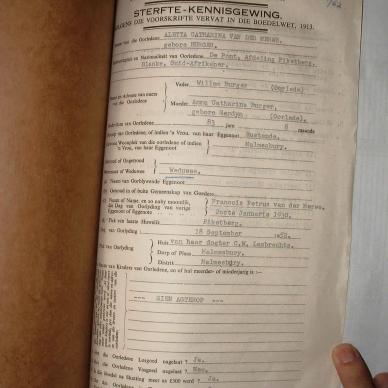 1/62
STERFTE-KENNISGEWING.
VOORSKRIFTE VERVAT IN DIE BOEDELWET, 1913.
Naam van die Oorledene ALETTA CATHARINA VAN DER MERWE,
gebore BURGER.
en Nasionaliteit van Oorledene De Pont, Afdeling Piketberg.
Blanke, Suid-Afrikaner.
Vader Willem Burger (Oorlede)
Name en Adresse van ouers van die Oorledene
Moeder Anna Catharina Burger,
(Oorlede).
Ouderdom van Oorledene 83 jare 8 maande
van Oorledene, of indien 'n Vrou, van haar Eggenoot Rustende.
Gewone Woonplek van die oorledene of indien 'n Vrou, van haar Eggenoot Malmesbury.
Getroud of Ongetroud
Wewenaar of Weduwee Weduwee.
(a) Naam van Oorblywende Eggenoot
Getroud in of buite Gemeenskap van Goedere
Naam of Name, en so nabij moontlik, die Dag van Oorlyding van vorige Eggenoot of Eggenote
Francois Petrus van der Merwe.
Januarie 1930.
Plek van laaste Huwelik Piketberg.
Dag van Oorlyding 18 September 1950.
Huis van haar dogter C.M. Lambrechts.
Dorp of Plaas Malmesbury.
Distrik Malmesbury.
Name van Kinders van Oorledene, en of hul meerder- of minderjarig is :—
--- SIEN AGTEROP ---
Het die Oorledene Losgoed nagelaat ? Ja.
Het die Oorledene Vasgoed nagelaat ? Nee.
Is die Boedel na Skatting meer as £300 werd ? Ja.